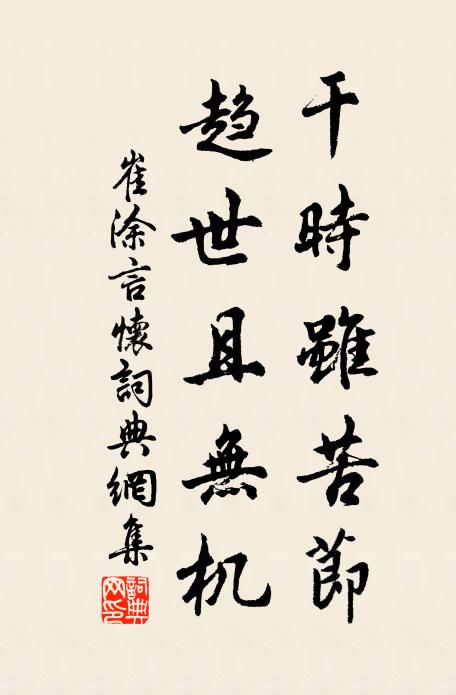 干時雖苦節
趋世且無机
崔涂言懷詞典網集
詞典网印